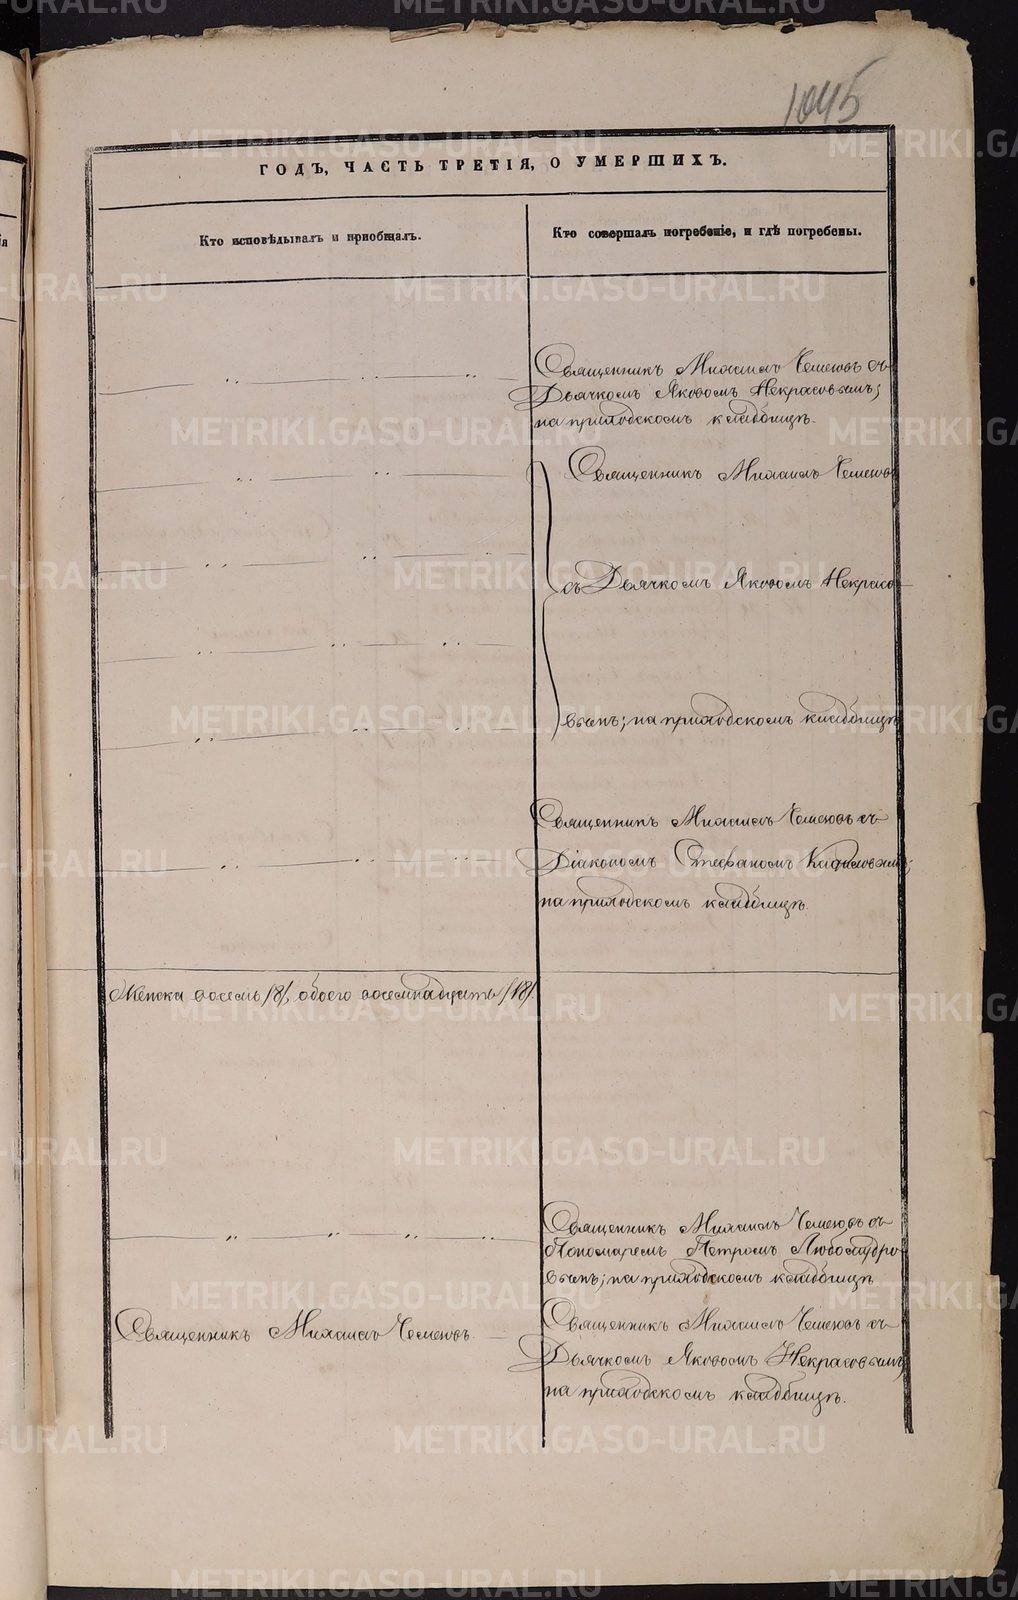 1045
ГОДЪ, ЧАСТЬ ТРЕТІЯ, О УМЕРШИХЪ.
Кто исповѣдывалъ и пріобщалъ.
Кто совершалъ погребеніе, и гдѣ погребены.
Священникъ Михаилъ Чемесовъ съ
Дьячкомъ Яковомъ Некрасовымъ;
на приходскомъ кладбищѣ.
Священникъ Михаилъ Чемесовъ
съ Дьячкомъ Яковомъ Некрасо-
вымъ; на приходскомъ кладбищѣ
Священникъ Михаилъ Чемесовъ съ
Діакономъ Стефаномъ
на приходскомъ кладбищѣ.
Женска восемь /8/, обоего восемнадцать /18/.
Священникъ Михаилъ Чемесовъ съ
Пономаремъ Петромъ Любомудро-
вымъ; на приходскомъ кладбищѣ
Священникъ Михаилъ Чемесовъ.
Священникъ Михаилъ Чемесовъ съ
Дьячкомъ Яковомъ Некрасовымъ;
на приходскомъ кладбищѣ.
METRIKI.GASO-URAL.RU